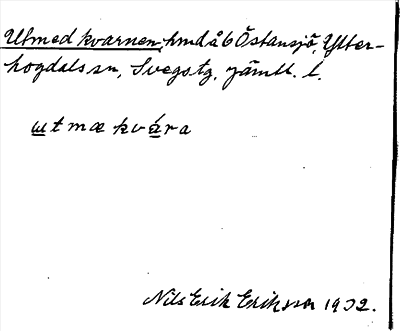 Utmed kvarnen, hmd å 6 Östansjö, Ytter-
hogdals sn, Svegs tg, Jämtl. l.
ɯtmæ kvára
Nils Erik Eriksson 1932.